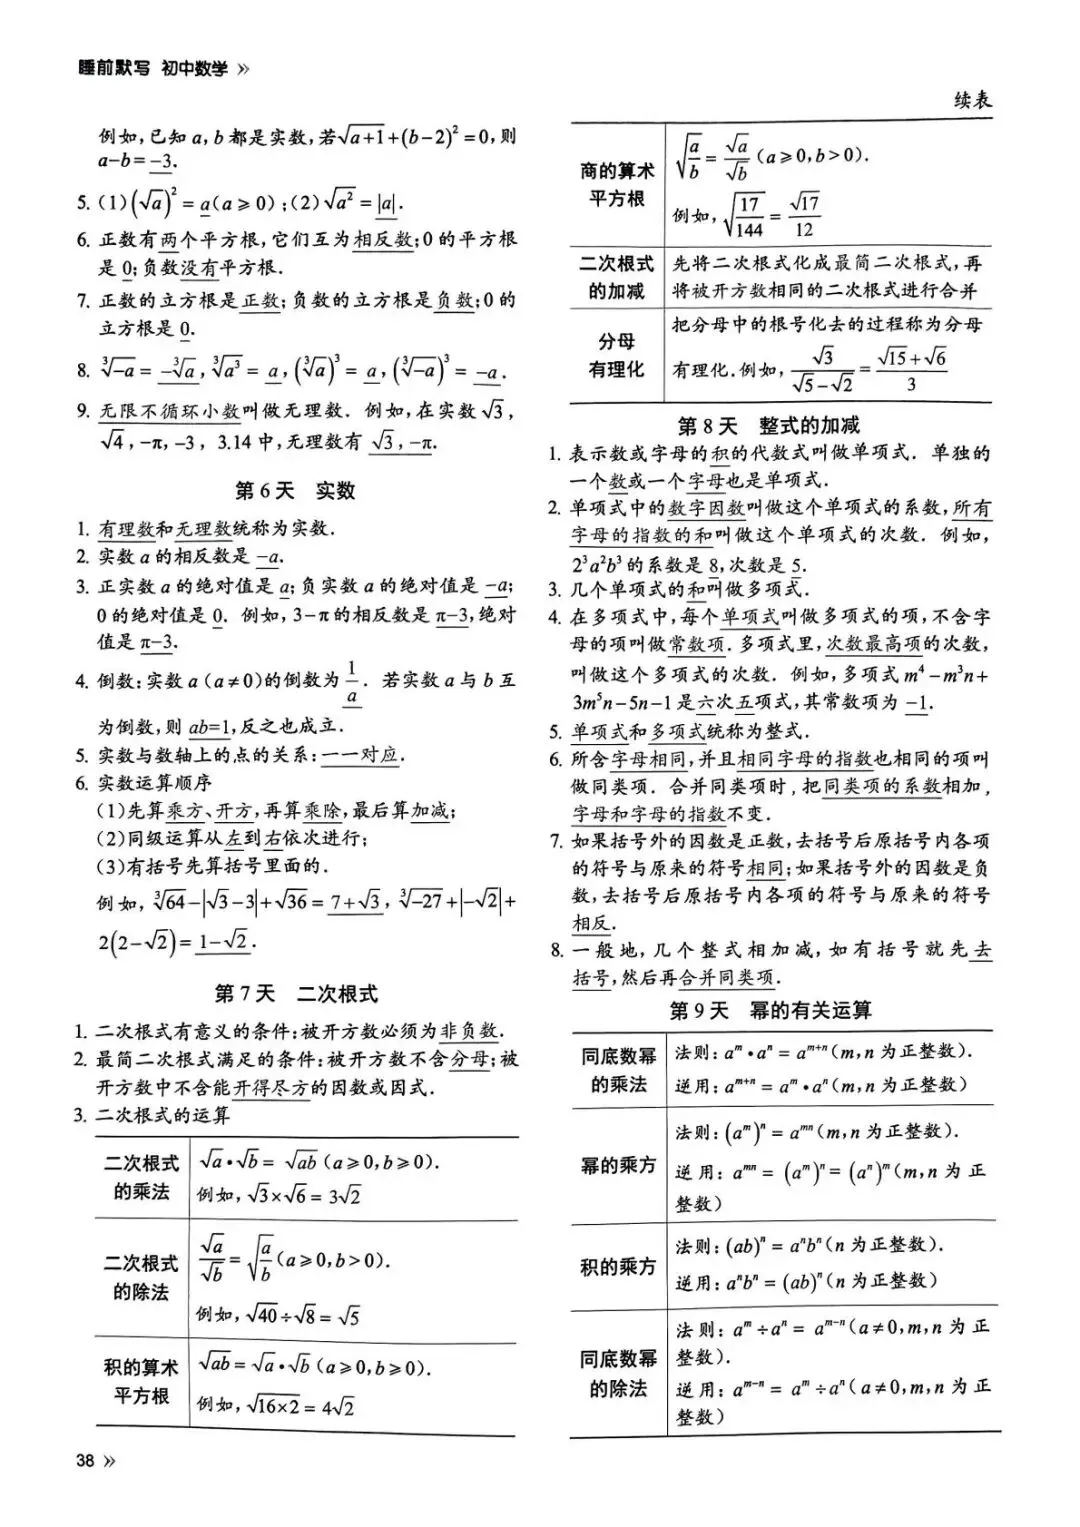 睡前默写 初中数学 »
例如,已知 a, b 都是实数,若√(a+1)+(b−2)²=0,则
a−b=−3.
5. (1)(√a)²=a(a≥0);(2)√(a²)=|a|.
6. 正数有两个平方根,它们互为相反数;0 的平方根
是 0;负数没有平方根.
7. 正数的立方根是正数;负数的立方根是负数;0 的
立方根是 0.
8. ∛(−a)=−∛a,∛(a³)=a,(∛a)³=a,(∛(−a))³=−a.
9. 无限不循环小数叫做无理数. 例如,在实数√3,
√4,−π,−3, 3.14 中,无理数有 √3,−π.
第 6 天 实数
1. 有理数和无理数统称为实数.
2. 实数 a 的相反数是 −a.
3. 正实数 a 的绝对值是 a;负实数 a 的绝对值是 −a;
0 的绝对值是 0. 例如,3−π的相反数是 π−3,绝对
值是 π−3.
4. 倒数:实数 a (a≠0)的倒数为 1/a. 若实数 a 与 b 互
为倒数,则 ab=1,反之也成立.
5. 实数与数轴上的点的关系:一一对应.
6. 实数运算顺序
(1)先算乘方、开方,再算乘除,最后算加减;
(2)同级运算从左到右依次进行;
(3)有括号先算括号里面的.
例如,∛64−|√3−3|+√36=7+√3,∛(−27)+|−√2|+
2(2−√2)=1−√2.
第 7 天 二次根式
1. 二次根式有意义的条件:被开方数必须为非负数.
2. 最简二次根式满足的条件:被开方数不含分母;被
开方数中不含能开得尽方的因数或因式.
3. 二次根式的运算
二次根式
的乘法
√a•√b= √(ab) (a≥0,b≥0).
例如,√3×√6=3√2
二次根式
的除法
√a/√b=√(a/b)(a≥0,b>0).
例如,√40÷√8=√5
积的算术
平方根
√(ab)=√a•√b (a≥0,b≥0).
例如,√(16×2)=4√2
38 »
续表
商的算术
平方根
√(a/b)=√a/√b (a≥0,b>0).
例如,√(17/144)=√17/12
二次根式
的加减
先将二次根式化成最简二次根式,再
将被开方数相同的二次根式进行合并
分母
有理化
把分母中的根号化去的过程称为分母
有理化.例如,√3/(√5−√2)=(√15+√6)/3
第 8 天 整式的加减
1. 表示数或字母的积的代数式叫做单项式. 单独的
一个数或一个字母也是单项式.
2. 单项式中的数字因数叫做这个单项式的系数,所有
字母的指数的和叫做这个单项式的次数. 例如,
2³a²b³ 的系数是 8,次数是 5.
3. 几个单项式的和叫做多项式.
4. 在多项式中,每个单项式叫做多项式的项,不含字
母的项叫做常数项.多项式里,次数最高项的次数,
叫做这个多项式的次数. 例如,多项式 m⁴−m³n+
3m⁵n−5n−1 是六次五项式,其常数项为 −1.
5. 单项式和多项式统称为整式.
6. 所含字母相同,并且相同字母的指数也相同的项叫
做同类项. 合并同类项时,把同类项的系数相加,
字母和字母的指数不变.
7. 如果括号外的因数是正数,去括号后原括号内各项
的符号与原来的符号相同;如果括号外的因数是负
数,去括号后原括号内各项的符号与原来的符号
相反.
8. 一般地,几个整式相加减,如有括号就先去
括号,然后再合并同类项.
第 9 天 幂的有关运算
同底数幂
的乘法
法则:aᵐ•aⁿ=aᵐ⁺ⁿ(m,n 为正整数).
逆用:aᵐ⁺ⁿ=aᵐ•aⁿ(m,n 为正整数)
幂的乘方
法则:(aᵐ)ⁿ=aᵐⁿ(m,n 为正整数).
逆用:aᵐⁿ=(aᵐ)ⁿ=(aⁿ)ᵐ(m,n 为正
整数)
积的乘方
法则:(ab)ⁿ=aⁿbⁿ(n 为正整数).
逆用:aⁿbⁿ=(ab)ⁿ(n 为正整数)
同底数幂
的除法
法则:aᵐ÷aⁿ=aᵐ⁻ⁿ(a≠0,m,n 为正
整数).
逆用:aᵐ⁻ⁿ=aᵐ÷aⁿ(a≠0,m,n 为正
整数)